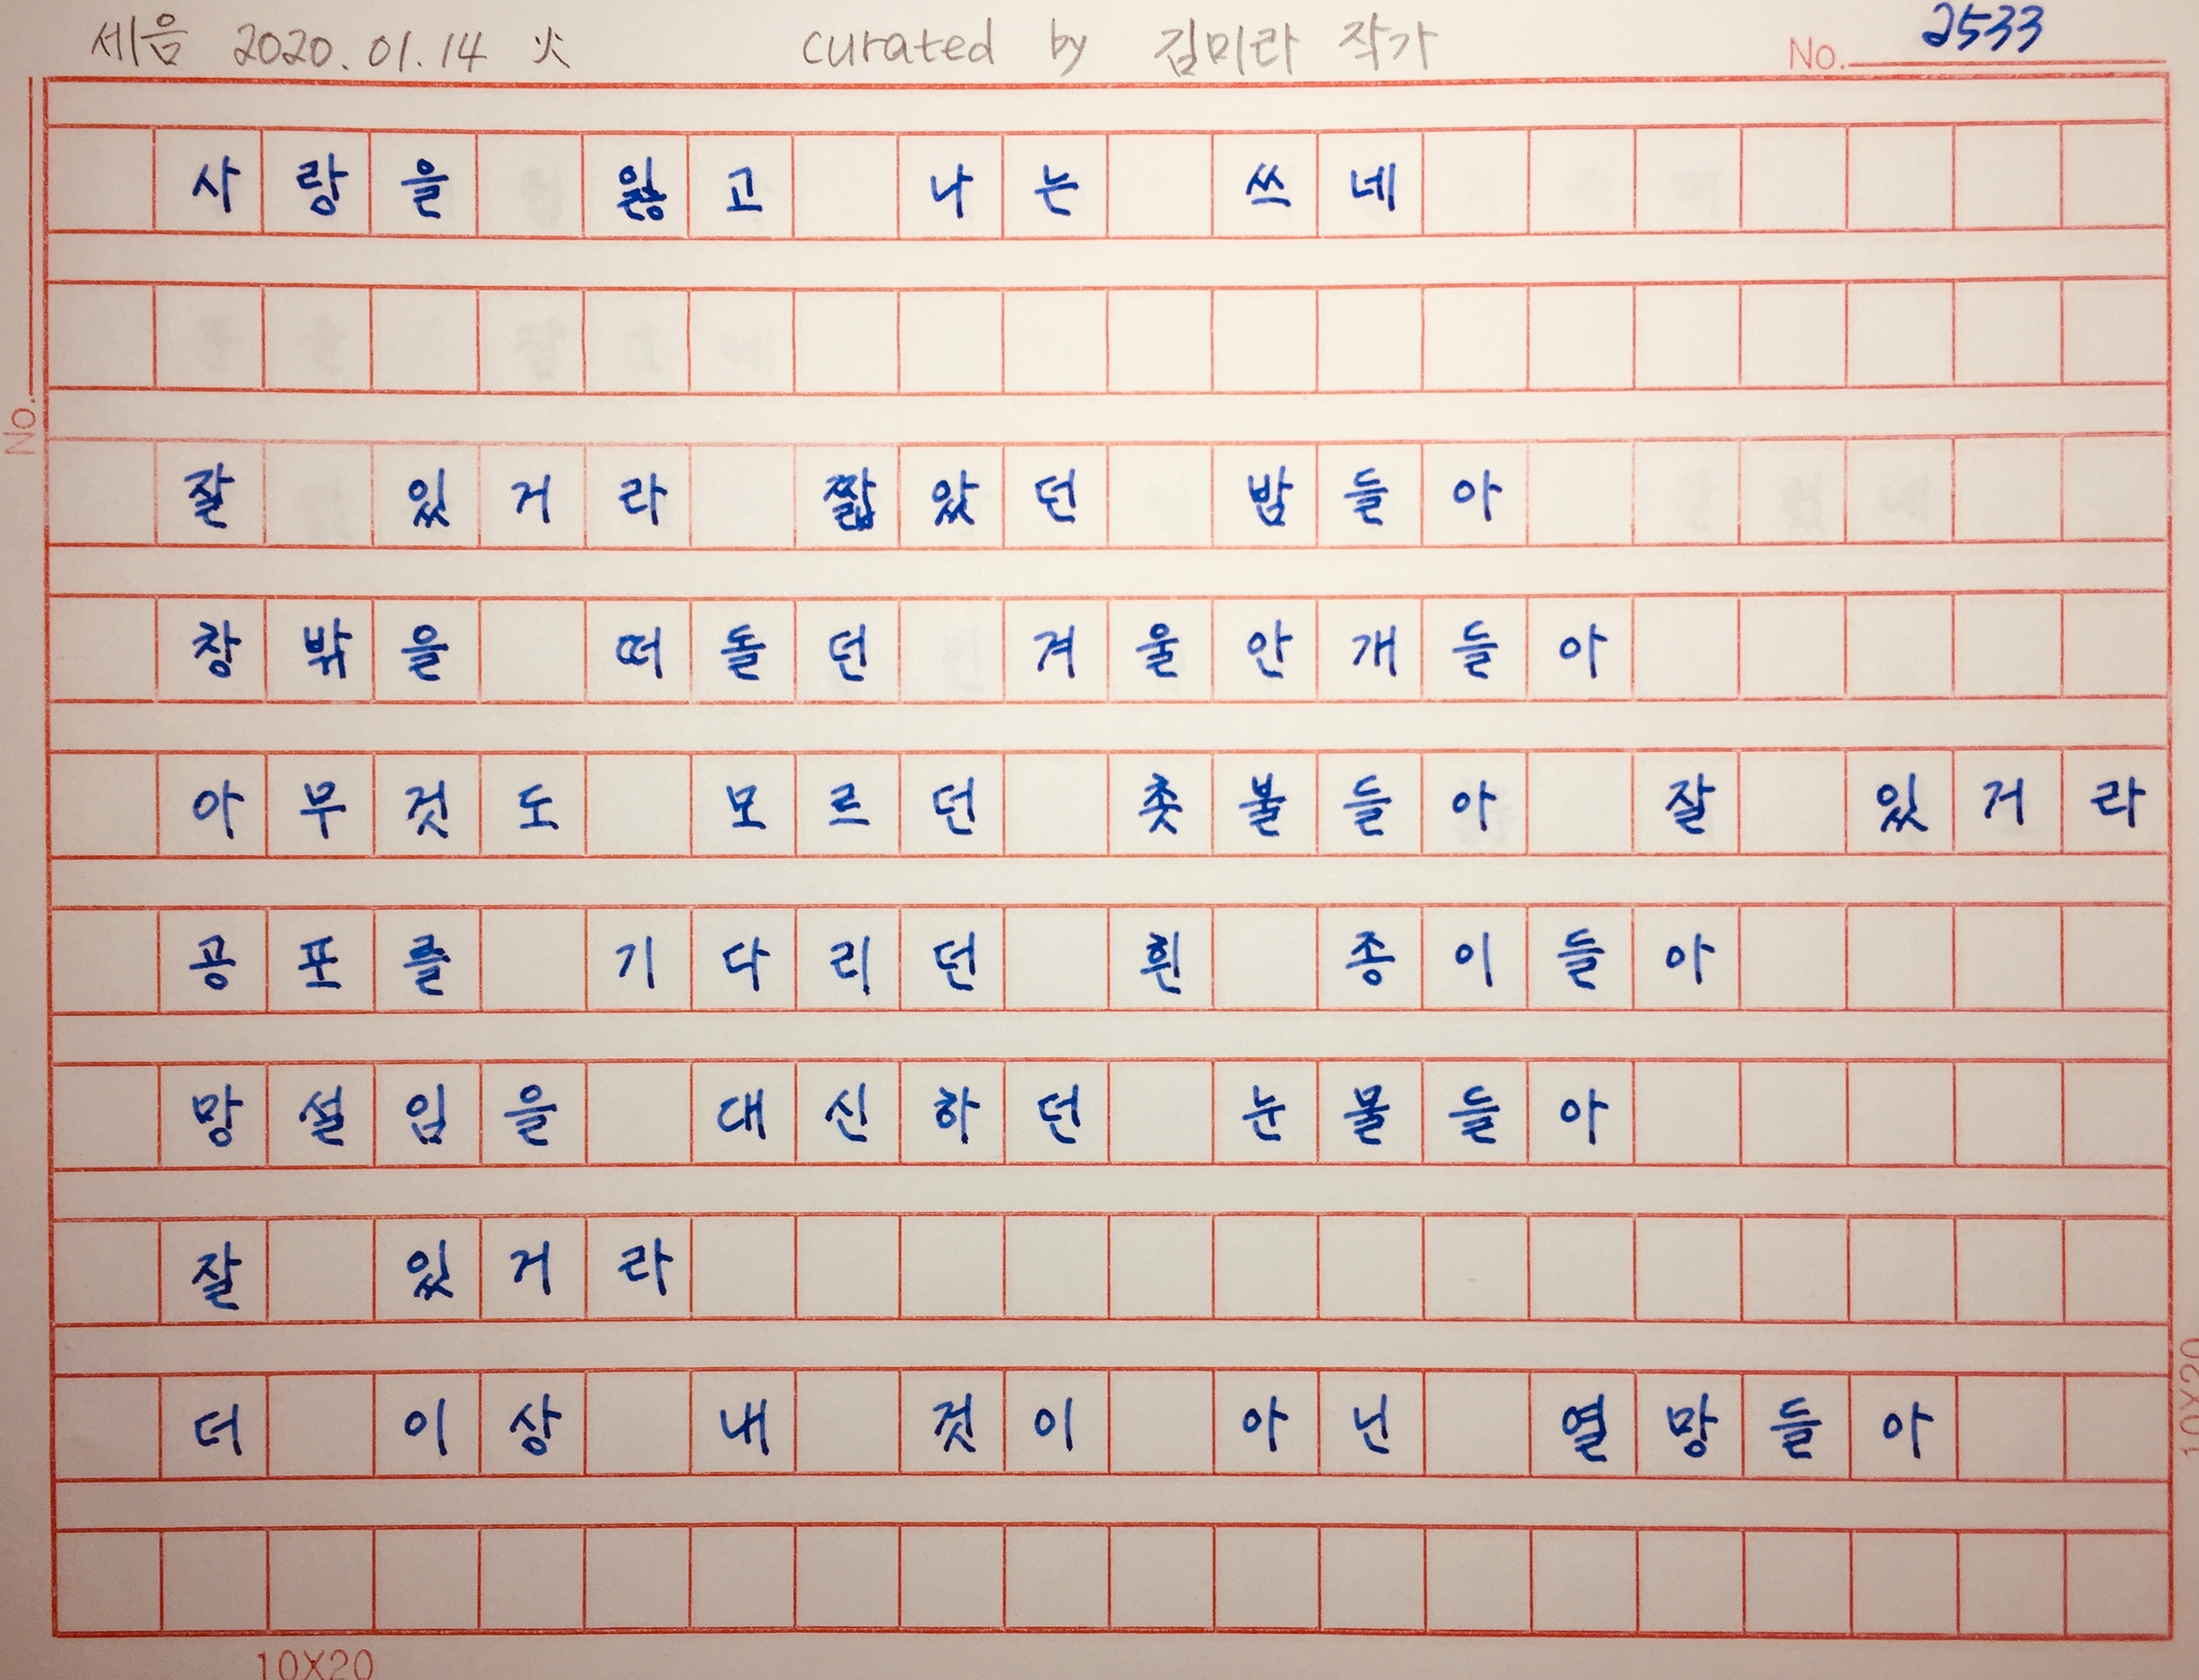 세음 2020.01.14 火 curated by 김미라 작가 No. 2533
사랑을 잃고 나는 쓰네
잘 있거라 짧았던 밤들아
창밖을 떠돌던 겨울안개들아
아무것도 모르던 촛불들아 잘 있거라
공포를 기다리던 흰 종이들아
망설임을 대신하던 눈물들아
잘 있거라
더 이상 내 것이 아닌 열망들아
No.
10X20
10X20